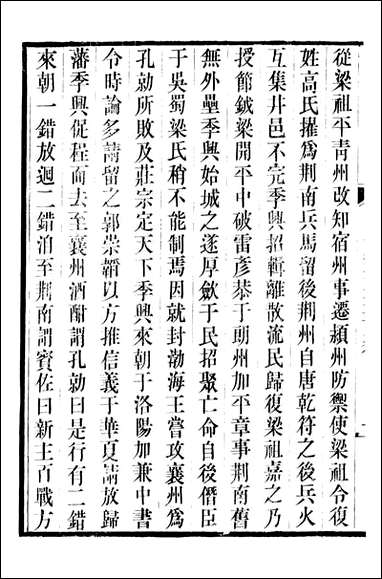 從梁祖平青州改知宿州事遷潁州防禦使梁祖令復
姓高氏擢爲荆南兵馬留後荆州自唐乾符之後兵火
互集井邑不完季興招輯離散流民歸復梁祖嘉之乃
授節鉞梁開平中破雷彥恭于朗州加平章事荆南舊
無外壘季興始城之遂厚斂于民招聚亡命自後僭臣
于吳蜀梁氏稍不能制焉因就封渤海王嘗攻襄州爲
孔勍所敗及莊宗定天下季興來朝于洛陽加兼中書
令時論多請留之郭崇韜以方推信義于華夏請放歸
藩季興促程而去至襄州酒酣謂孔勍曰是行有二錯
來朝一錯放迴二錯洎至荆南謂賓佐曰新主百戰方